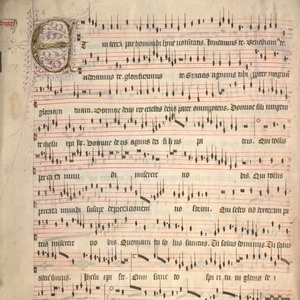 Et in terra pax hominibus bone voluntatis. Laudamus te. Benedicimus te.
Adoramus te. glorificamus te. Gracias agimus tibi propter magnam
gloriam tuam. Domine deus rex celestis deus pater omnipotens. Domine fili unigenite
te ihesu christe. Domine deus agnus dei filius patris. Qui tollis
peccata mundi miserere nobis. Qui tollis
peccata mundi suscipe deprecationem nostram. Qui sedes ad dexteram pa
tris miserere nobis. Quoniam tu solus sanctus. Tu solus dominus. Tu solus
altissimus. Ihesu christe. Cum sancto spiritu in gloria dei